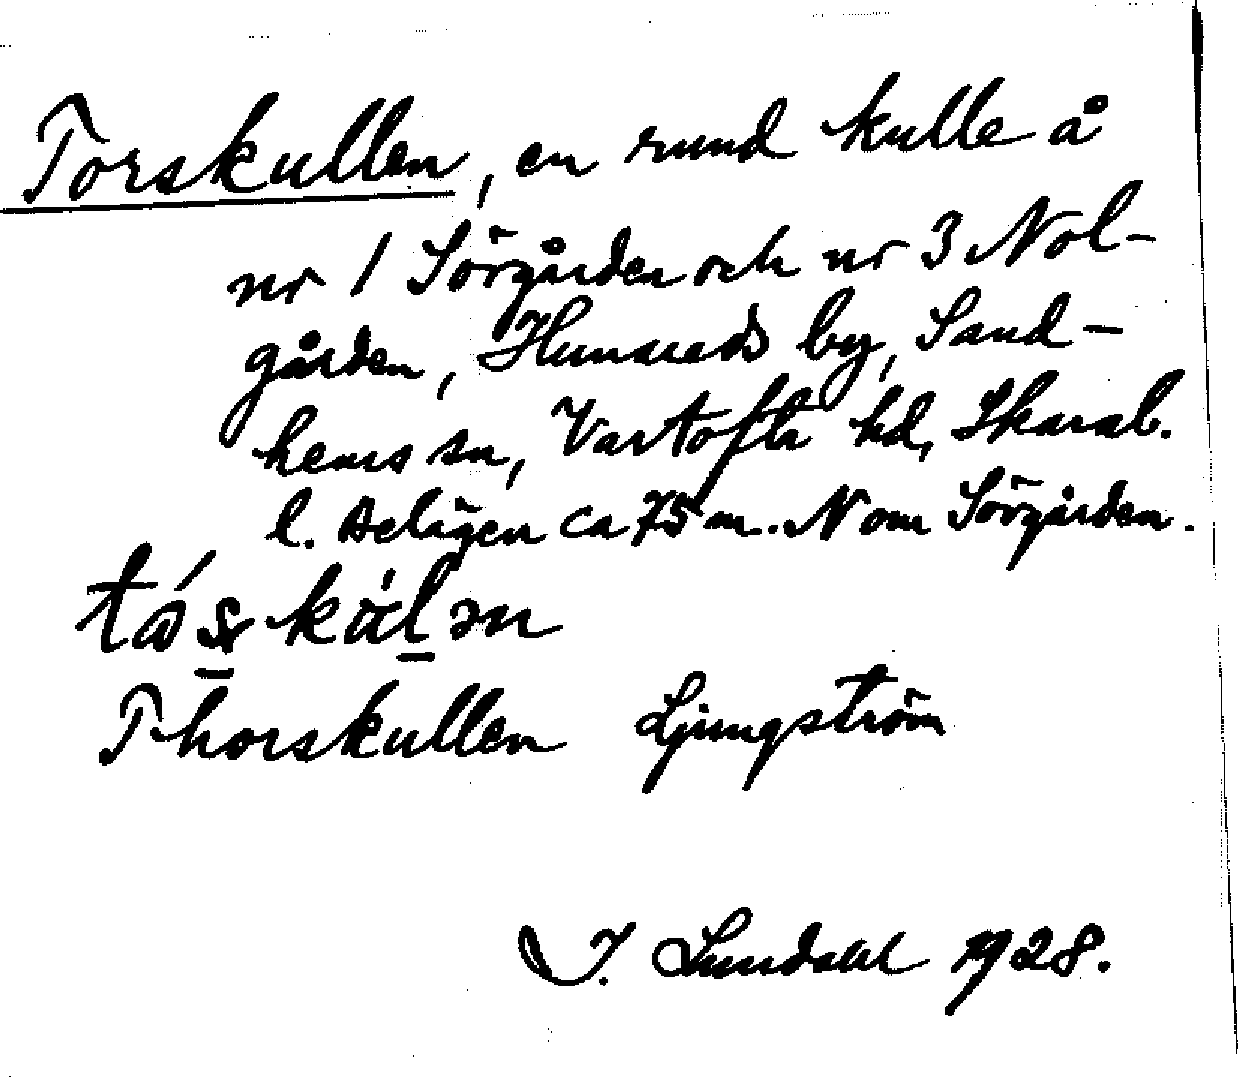 Torskullen, en rund kulle å
nr 1 Sörgården och nr 3 Nol-
gården, Hunareds by, Sand-
hems sn, Vartofta hd, Skarab.
l. Belägen ca 75 m. N om Sörgården.
Thorskullen Ljungström
I. Lundahl 1928.